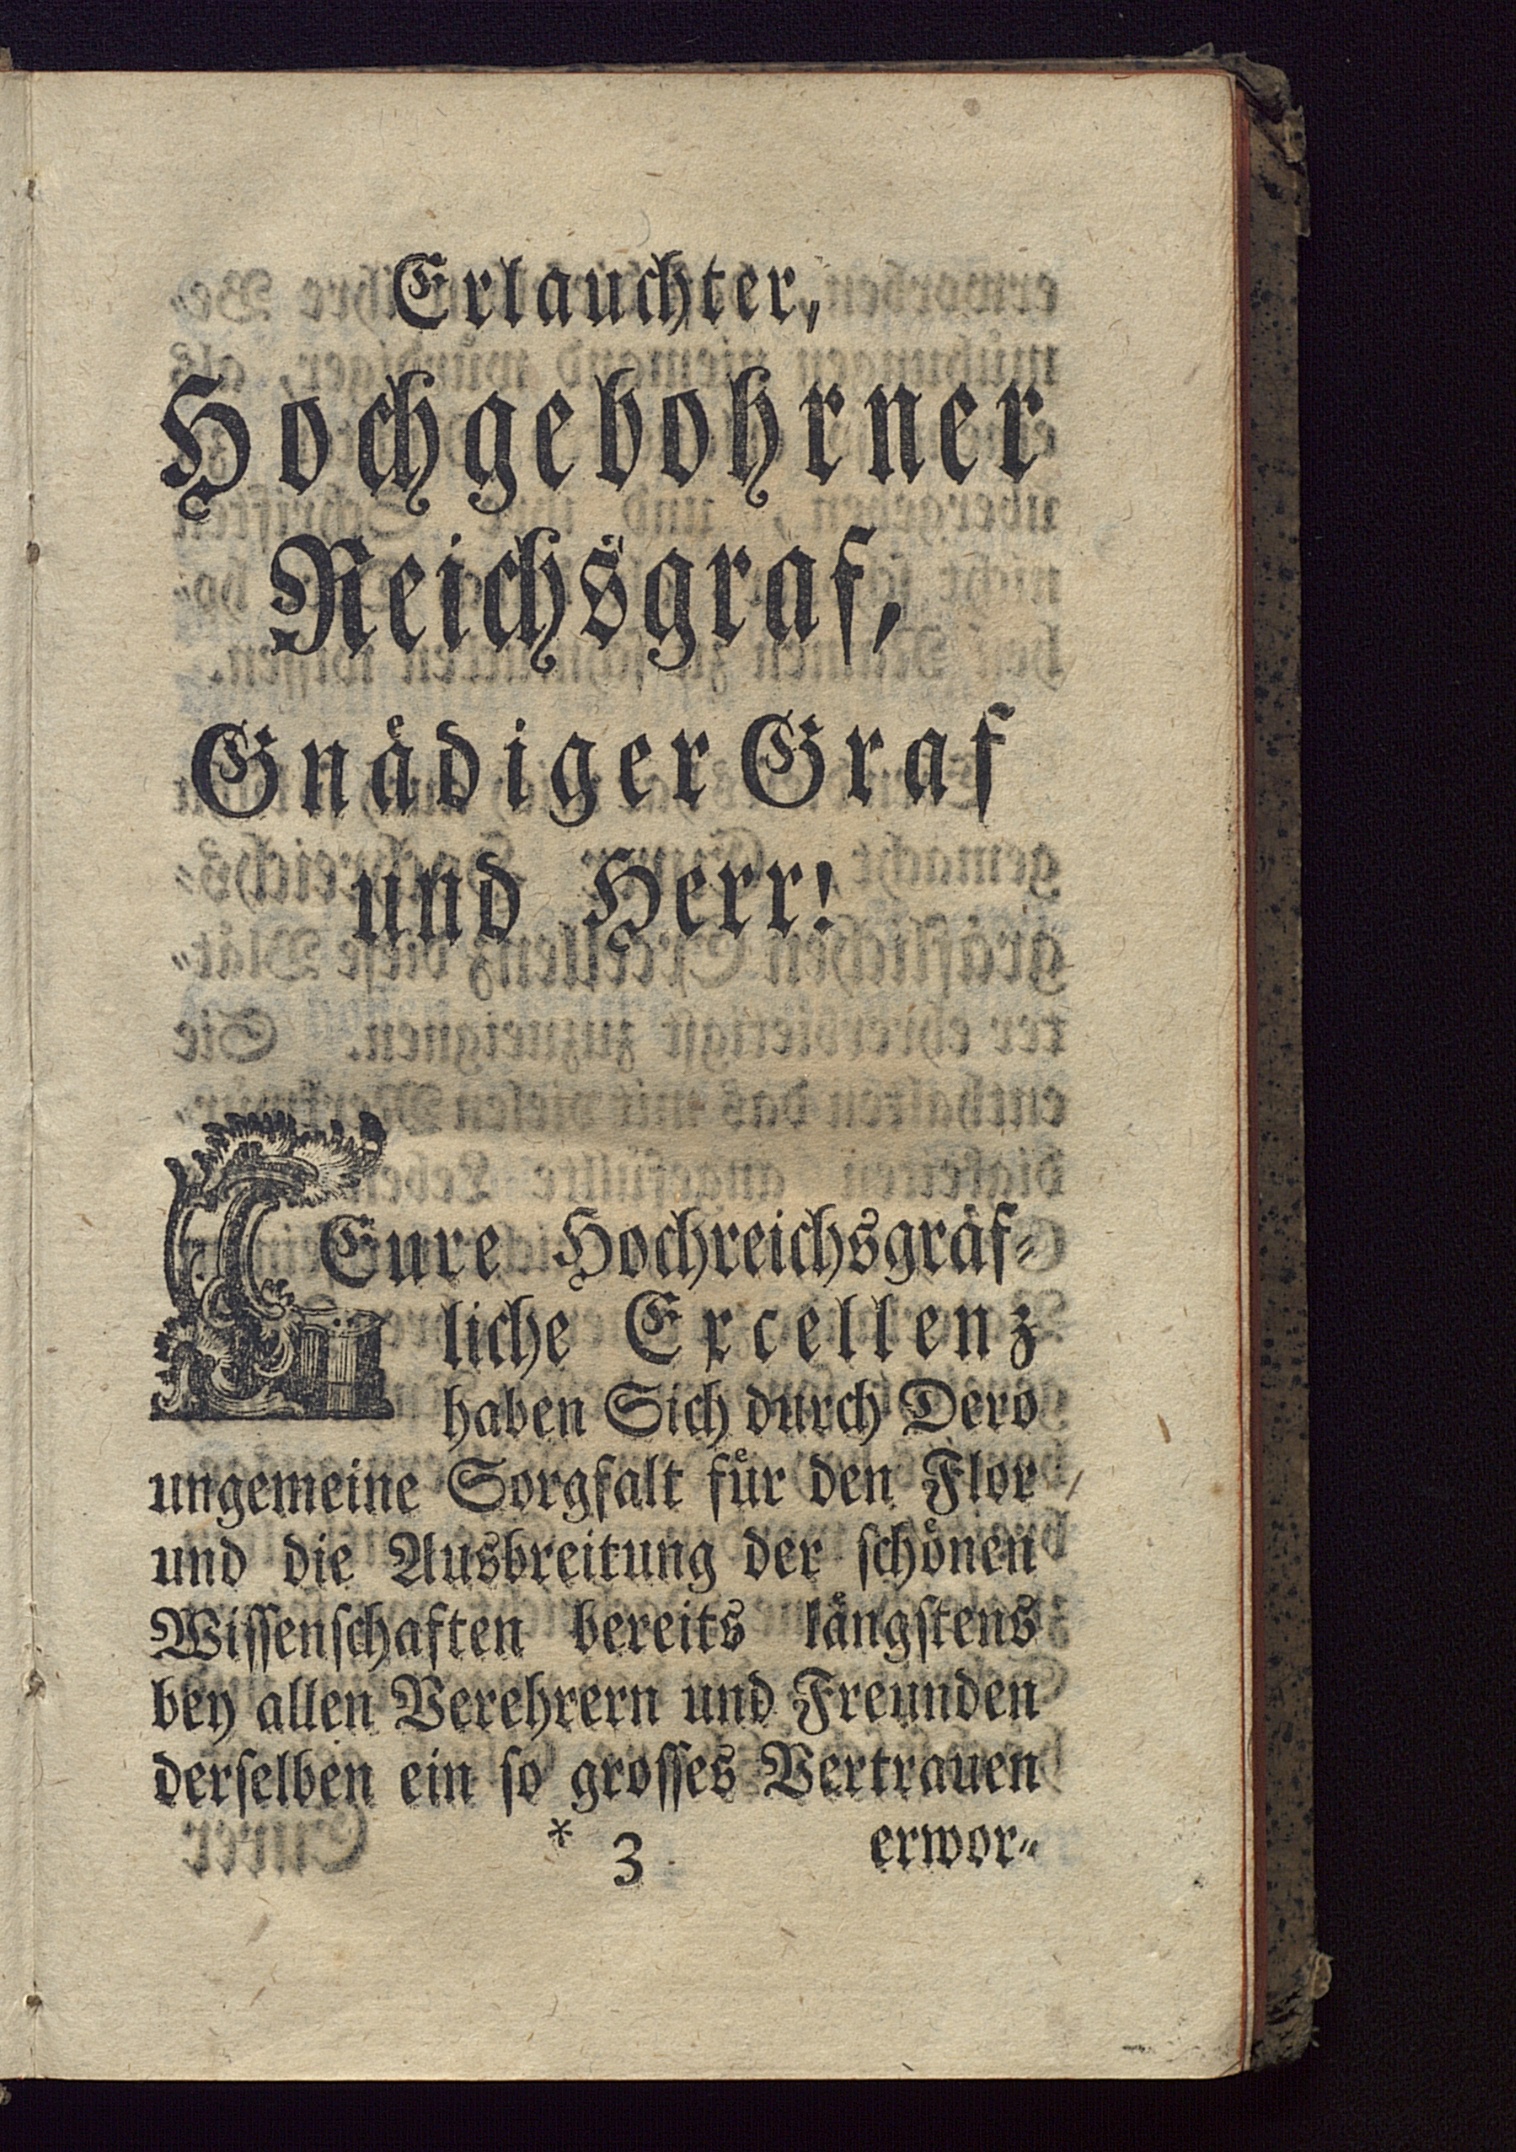 Erlauchter,
Hochgebohrner
Reichsgraf,
Gnädiger Graf
und Herr!
EEure Hochreichsgräf-
liche Excellenz
haben Sich durch Dero
ungemeine Sorgfalt für den Flor
und die Ausbreitung der schönen
Wissenschaften bereits längstens
bey allen Verehrern und Freunden
derselben ein so grosses Vertrauen
* 3 erwor-